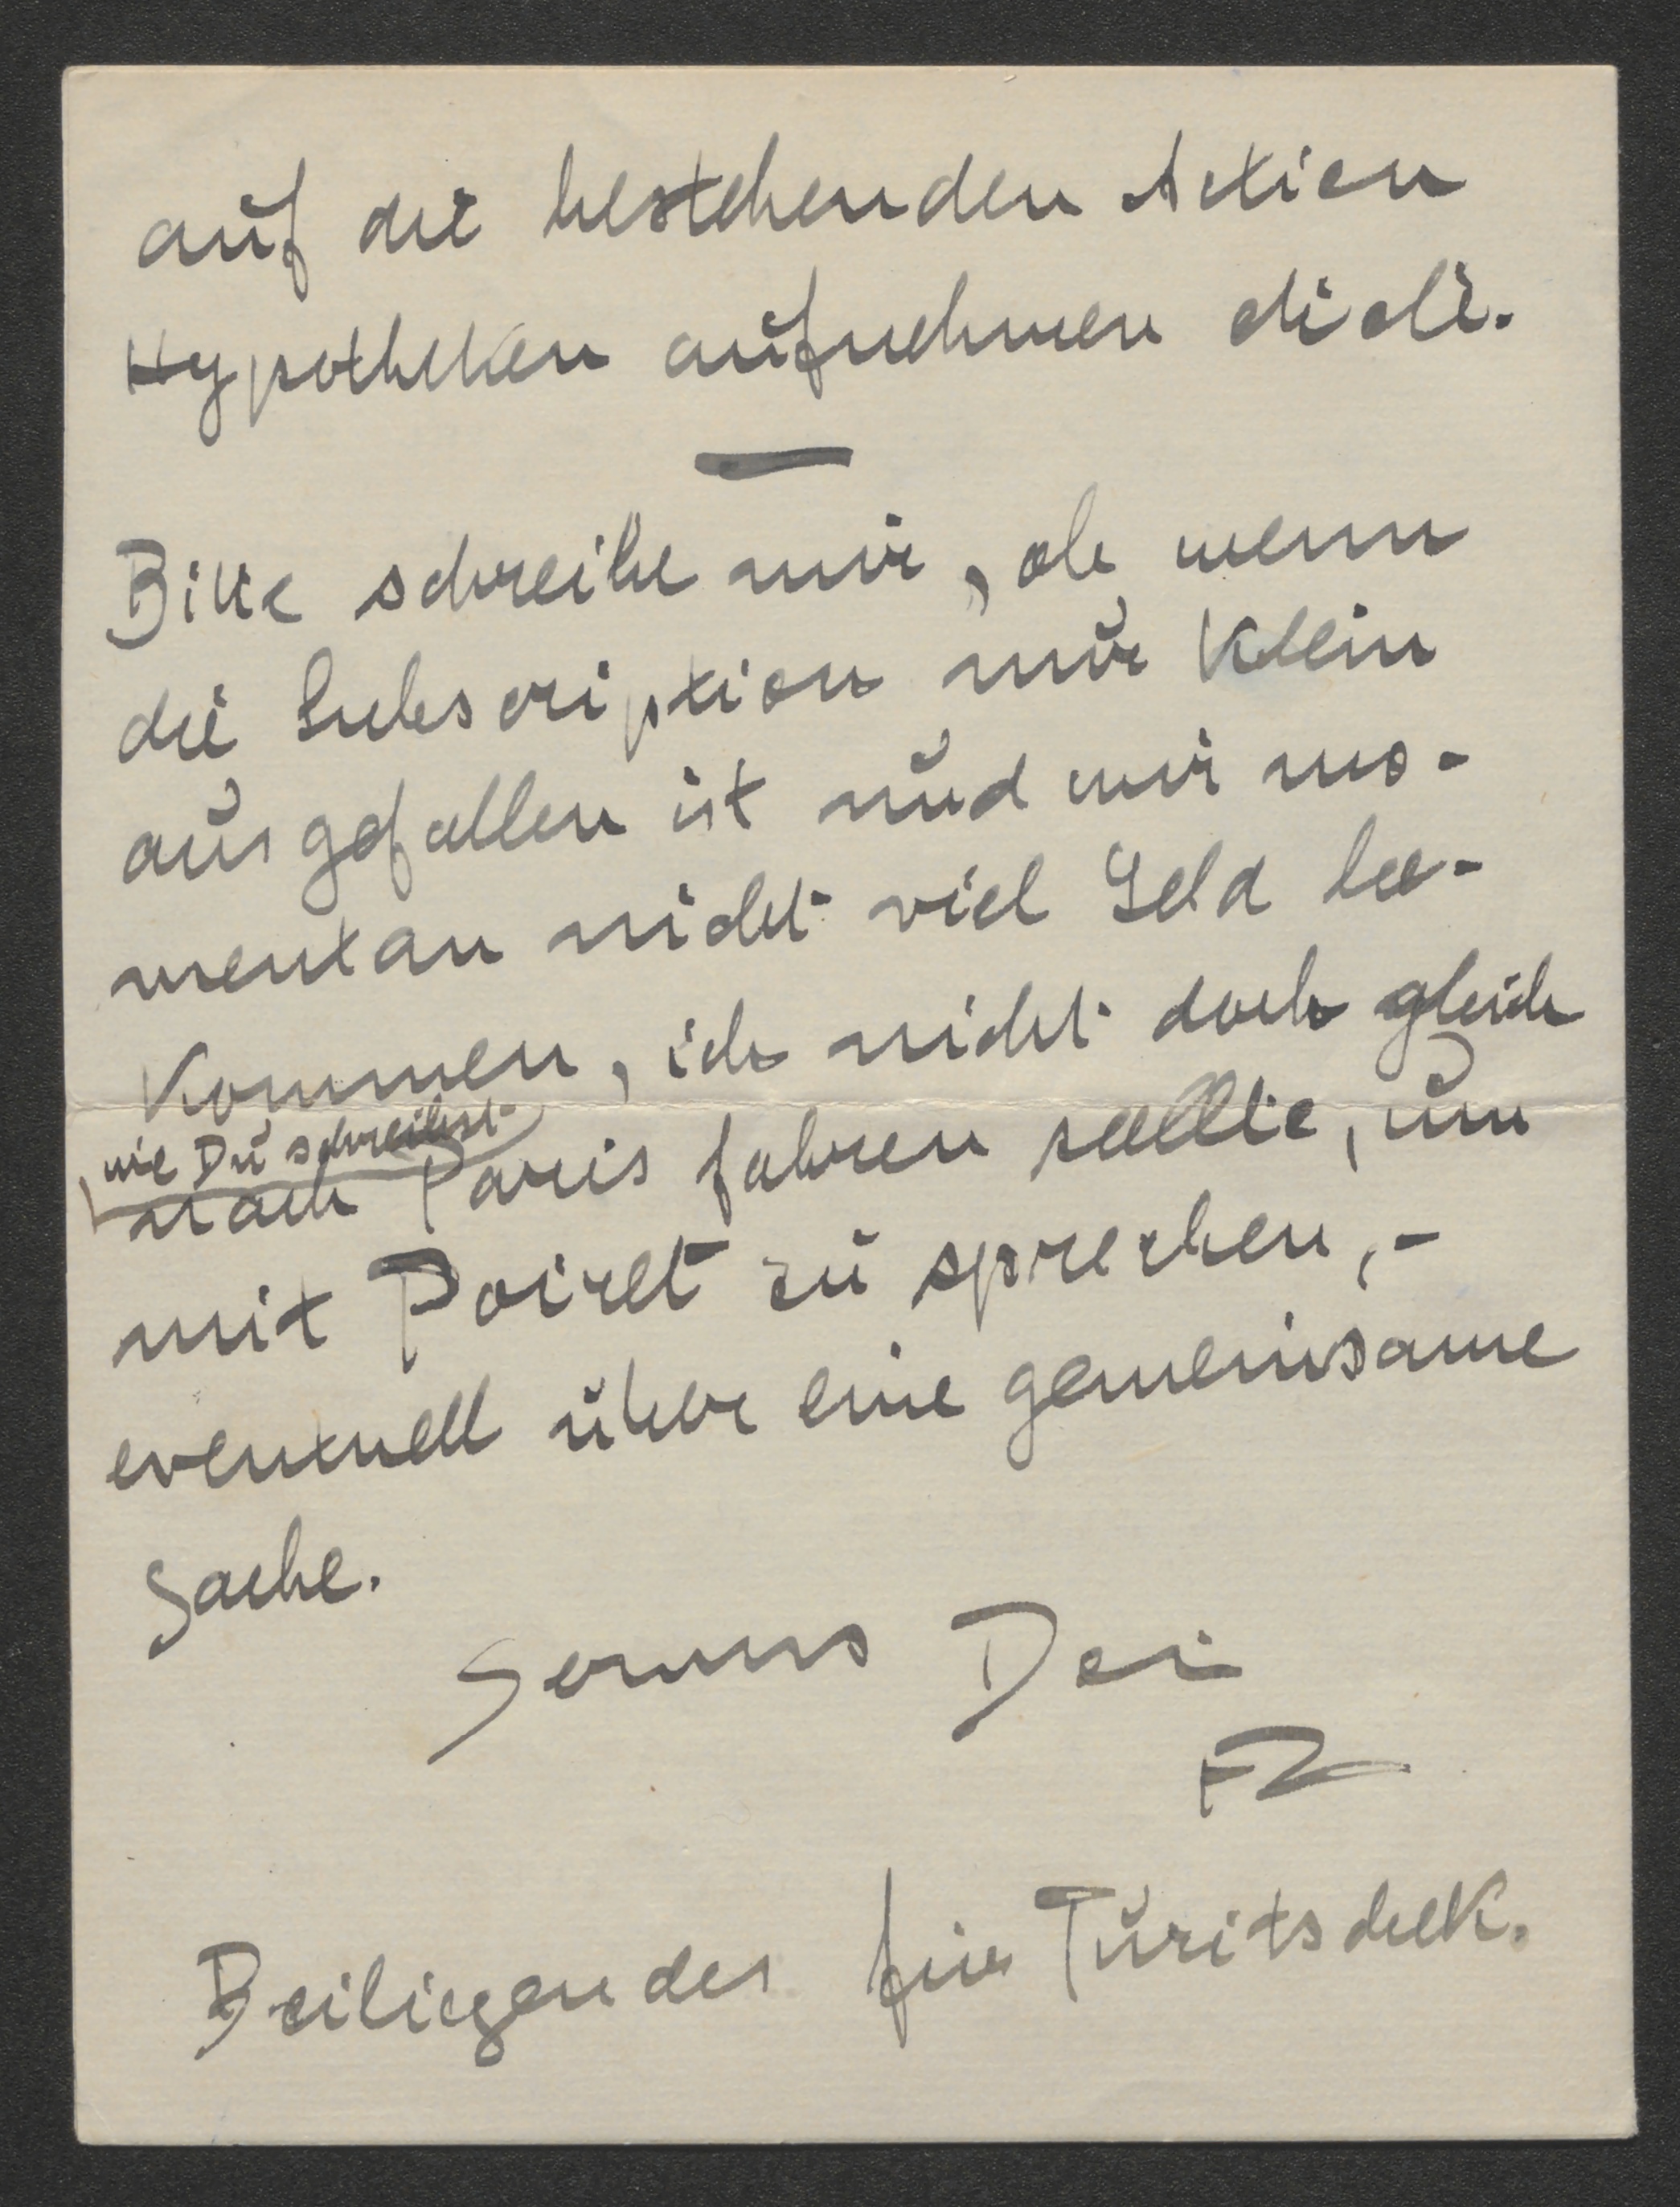 auf die bestehenden Actien
Hypotheken aufnehmen
Bitte schreibe mir, ob wenn
die Subscription nur klein
ausgefallen ist und wir mo-
mentan nicht viel Geld be-
kommen, ich nicht doch gleich
wie Du schreibst
nach Paris fahren sollte, um
mit Poiret zu sprechen, -
eventuell über eine gemeinsame
Sache.
Servus Dei
FZ
Beiliegendes für Turitschek.